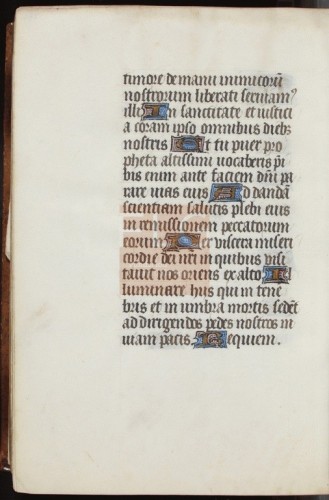 timore de manu inimicorū
nostrorum liberati seruiamꝰ
illi In sanctitate et iustici
a coram ipso omnibus dieb;
nostris Et tu puer pro
pheta altissimi vocaberis p̄i
bis enim ante faciem dn̄i pa
rare uias eius Ad dandā
scientiam salutis plebi eius
in remissionem peccatorum
eorum Per viscera miseri
cordie dei nr̄i in quibus visi
tauit nos oriens ex alto Il
luminare hiis qui in tene
bris et in umbra mortis sedēt
ad dirigendos pedes nostros in
uiam pacis. Requiem.